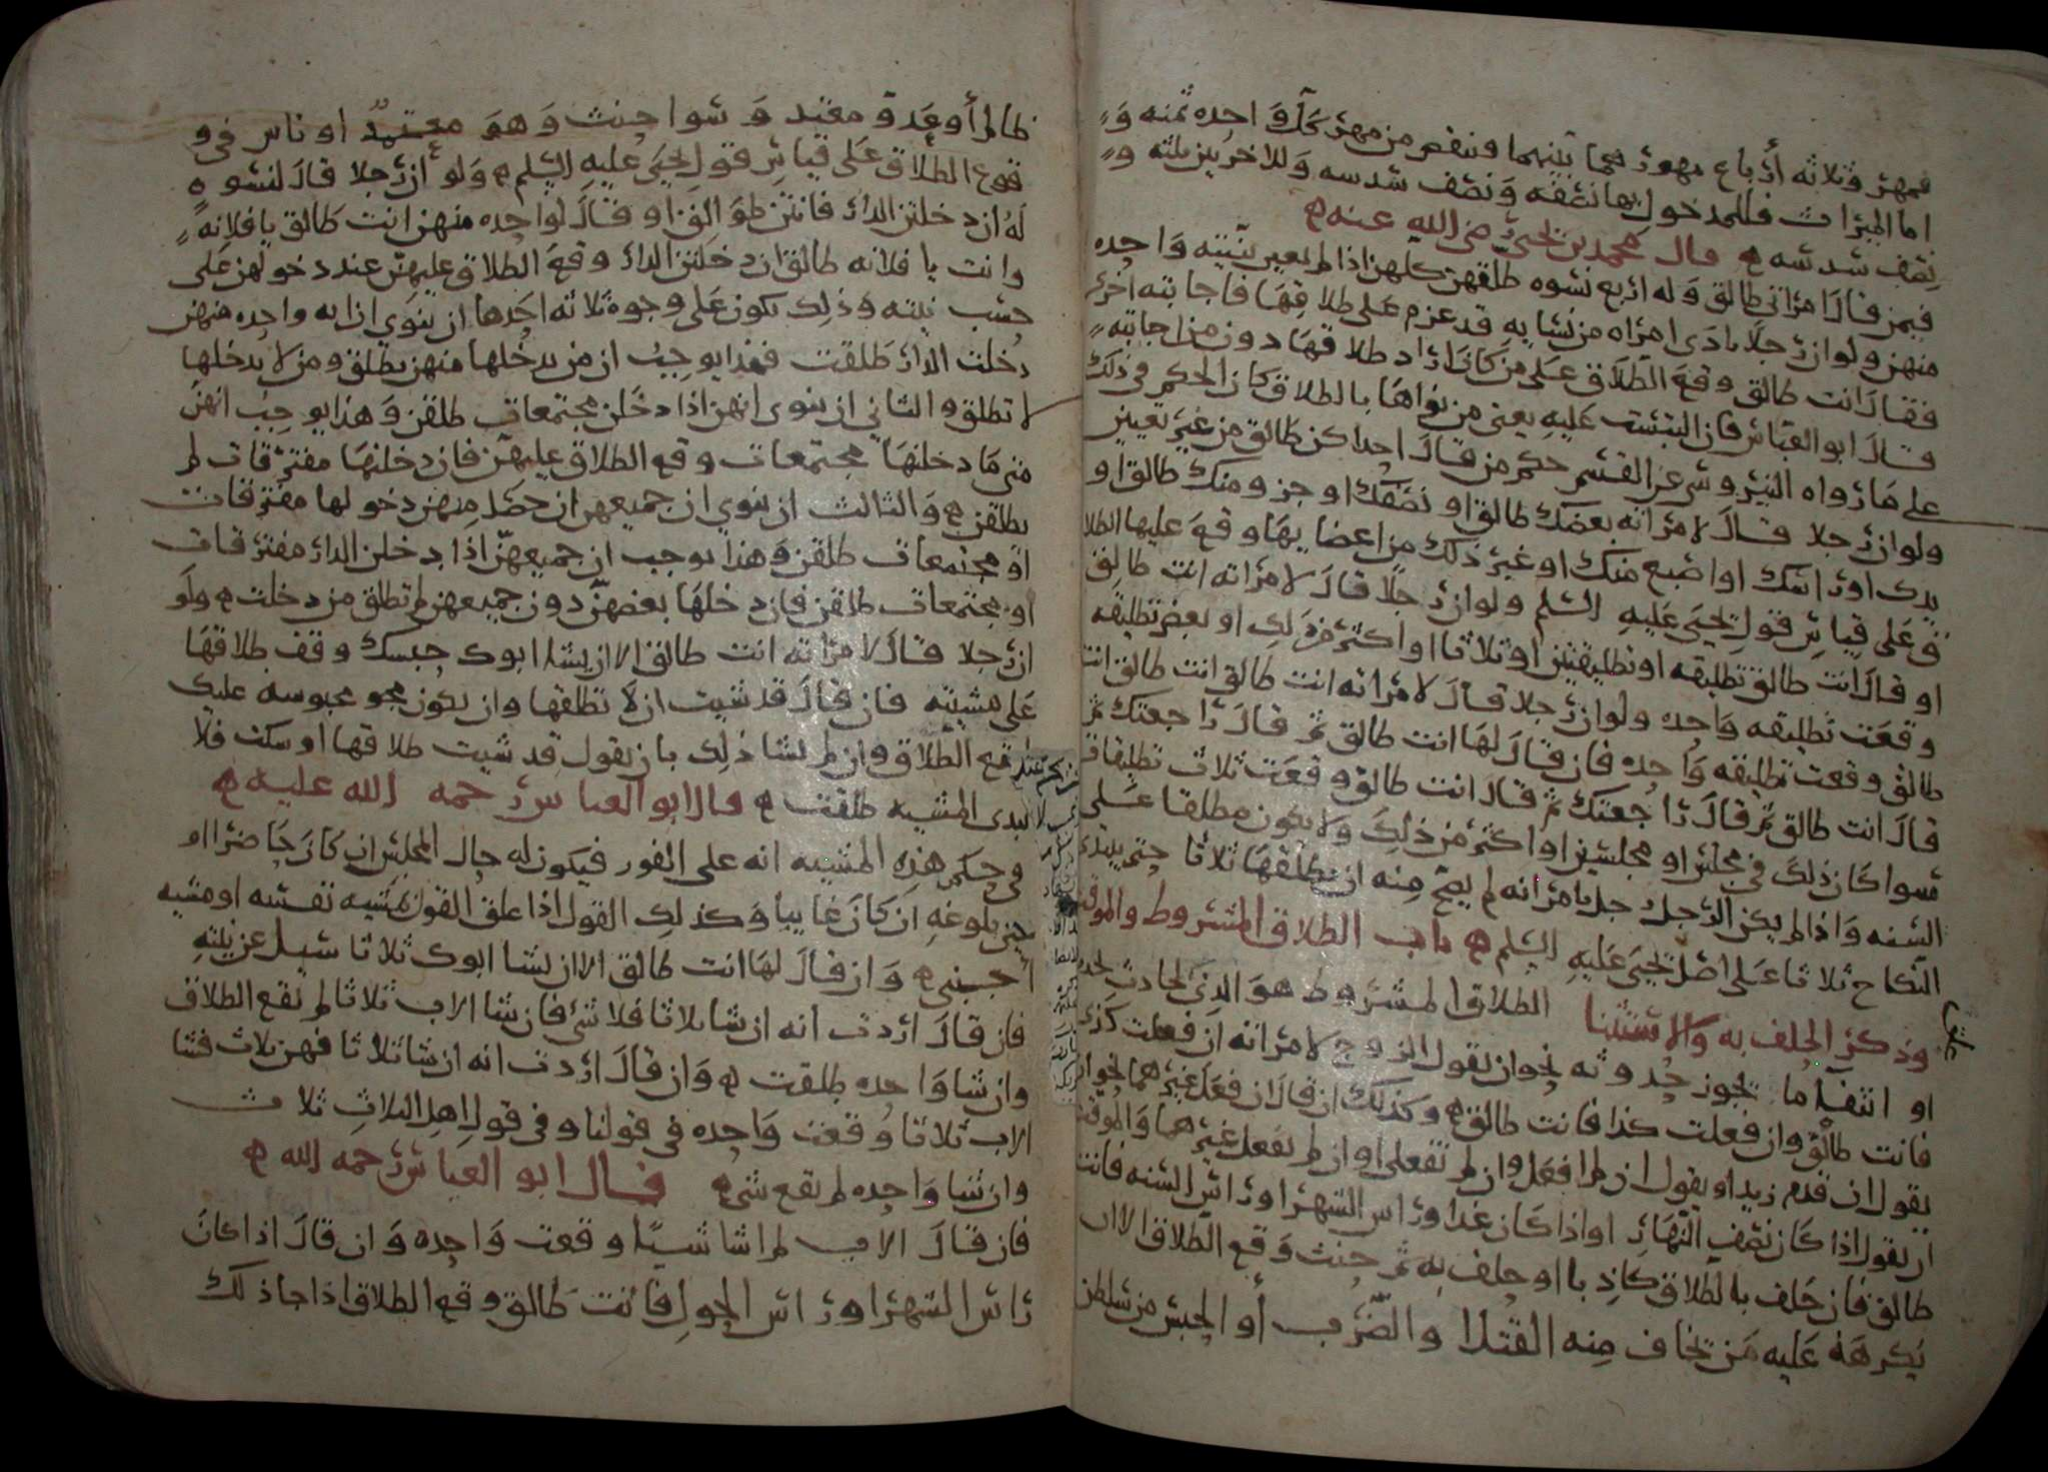 فمهر وثلاثه أرباع مهور فيما بينهما فنقص من مهر كل واحده ثمنه و
اما الميراث فللمدخول بها نصفه ونصف سدسه وللاخريين ثلثه و
نصف سدسه قال محمد بن يحيى رضى الله عنه
فيمن قال امراتى طالق وله اربع نسوه طلقهن كلهن اذا لم يعين بنيته واحده
منهن ولو ان رجلا نادى امراه من نسايه قد عزم على طلاقها فاجابته اخرى
فقال انت طالق وقع الطلاق على من كان اراد طلاقها دون من اجابته
قال ابو العباس فان التبست عليه يعنى من نواها بالطلاق كان الحكم فى ذلك
على ما رواه النيروسى عن القسم حكم من قال احداكن طالق من غير تعيين
ولو ان رجلا قال لامراته بعضك طالق او نصفك او جزو منك طالق او
يدك او راسك او اصبع منك او غير ذلك من اعضايها وقع عليها الطلا
ق على قياس قول يحيى عليه السلم ولو ان رجلا قال لامراته انت طالق
او قال انت طالق تطليقه او تطليقتين او ثلاثا او اكثر من ذلك او بعض تطليقه
وقعت تطليقه واحده ولو ان رجلا قال لامراته انت طالق انت طالق انت
طالق وقعت تطليقه واحده فان قال لها انت طالق ثم قال راجعتك ثم
قال انت طالق ثم قال راجعتك ثم قال انت طالق وقعت ثلاث تطليقات
سوا كان ذلك فى مجلس او مجلسين او اكثر من ذلك ولا يكون مطلقا على
السنه واذا لم يكن الرجل دخل بامراته لم يصح منه ان يطلقها ثلاثا حتى يبتدى
النكاح ثلاثا على اصل يحيى عليه السلم باب الطلاق المشروط والموقت
وذكر الحلف به والاستثنا الطلاق المشروط هو الذى لحادث يحدث
او انتفا ما يجوز حدوثه نحو ان يقول الزوج لامراته ان فعلت كذى
فانت طالق وان فعلت كذا فانت طالق وكذلك ان قال ان فعل غيرهما نحو ان
يقول ان قدم زيد او يقول ان لم افعل وان لم تفعلى او ان لم يفعل غيرهما والموقت
ان يقول اذا كان نصف النهار او اذا كان غدا او راس الشهر او راس السنه فانت
طالق فان حلف بالطلاق كاذبا او حلف به ثم حنث وقع الطلاق الا ان
يكرهه عليه من يخاف منه القتل او الضرب او الحبس من سلطان
ظالم او عدو مقتد وسوا حنث وهو معتمد او ناس فى و
قوع الطلاق على قياس قول يحيى عليه السلم ولو ان رجلا قال لنسوه
له ان دخلتن الدار فانتن طوالق او قال لواحده منهن انت طالق يا فلانه
وانت يا فلانه طالق ان دخلتن الدار وقع الطلاق عليهن عند دخولهن على
حسب نيته وذلك يكون على وجوه ثلاثه احدها ان ينوى ان ايه واحده منهن
دخلت الدار طلقت فهذا يوجب ان من يدخلها منهن يطلق ومن لا يدخلها
لا تطلق والثانى ان ينوى انهن اذا دخلن مجتمعات طلقن وهذا يوجب انهن
متى ما دخلنها مجتمعات وقع الطلاق عليهن فان دخلنها مفترقات لم
يطلقن والثالث ان ينوي ان جميعهن ان حصل منهن دخولها مفترقات
او مجتمعات طلقن وهذا يوجب ان جميعهن اذا دخلن الدار مفترقات
او مجتمعات طلقن فان دخلها بعضهن دون جميعهن لم تطلق من دخلت ولو
ان رجلا قال لامراته انت طالق الا ان يشا ابوك حبسك وقف طلاقها
على مشيته فان قال قد شيت ان لا تطلقها وان يكون محبوسه عليك
لم يقع الطلاق وان لم يشا ذلك بان يقول قد شيت طلاقها او سكت فلا
يبدى المشيه طلقت قال ابو العباس رحمه الله عليه
فى حكم هذه المشيه انه على الفور فيكون له حال المجلس ان كان حاضرا او
حين بلوغه ان كان غايبا وكذلك القول اذا علق القول بمشيه نفسه او مشيه
اجنبى وان قال لها انت طالق الا ان يشا ابوك ثلاثا سيل عن نيته
فان قال اردت انه ان شا ثلاثا فلا شى فان شا الاب ثلاثا لم يقع الطلاق
وان شا واحده طلقت وان قال اردت انه ان شا ثلاثا فهن ثلاث فشا
الاب ثلاثا وقعت واحده فى قولنا وفى قول اهل الثلاث ثلاث
وان شا واحده لم يقع شى قال ابو العباس رحمه الله
فان قال الاب لم اشا شيا وقعت واحده وان قال اذا كان
راس الشهر او راس الحول فانت طالق وقع الطلاق اذا جا ذلك